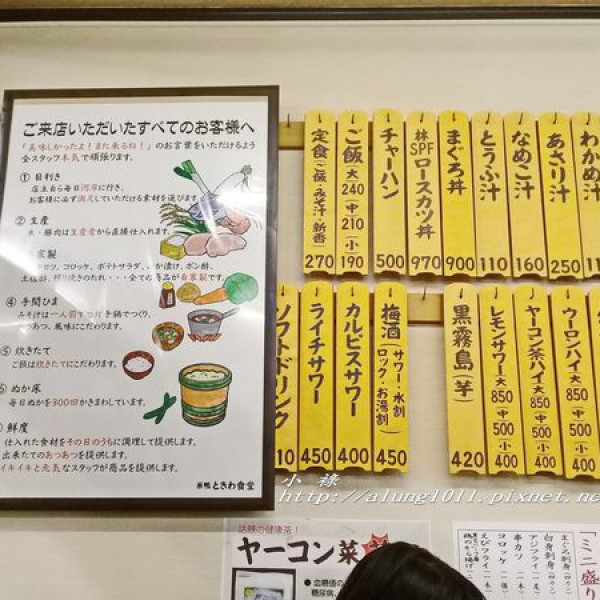 ご来店いただいたすべてのお客様へ
「美味しかったよ！また来るね！」のお言葉をいただけるよう
全スタッフ本気で頑張ります。
① 目利き
店主自ら毎日河岸に行き、
お客様に必ず満足していただける素材を選びます。
② 生産
米・豚肉は生産者から直接仕入れます。
家製
カツ、コロッケ、ポテトサラダ、いか漬け、ポン酢、
全ての商品が自家製です。
④ 手間ひま
みそ汁は一人前ずつ片手鍋でつくり、
あつあつ、風味にこだわります。
⑤ 炊きたて
ご飯は炊きたてにこだわります。
ぬか床
毎日ぬかを300回かきまわしています。
鮮度
仕入れた食材をその日のうちに調理して提供します。
出来たてのあつあつを提供します。
イキイキと元気なスタッフが商品を提供します。
巣鴨 ときわ食堂
定食（ご飯・みそ汁・新香） 270
ご飯 大 240 中 210 小 190
チャーハン 500
林SPFロースカツ丼 970
まぐろ丼 900
とうふ汁 110
なめこ汁 160
あさり汁 250
わかめ汁
ソフトドリンク
ライチサワー 450
カルピスサワー 400
梅酒（サワー・水割 ロック・お湯割） 450
黒霧島（芋） 420
レモンサワー 大 850 中 500 小 400
ヤーコン茶ハイ 大 850 中 500 小 400
ウーロンハイ 大 850 中 500 小 400
小祿
http://alung1011.pixnet.ne
話題の健康茶！
ヤーコン茶
● 血糖値の
糖尿病、
「ミニ盛り
まぐろ刺身
白身刺身
アジフライ
串カツ
コロッケ
えびフライ
鶏のから揚げ